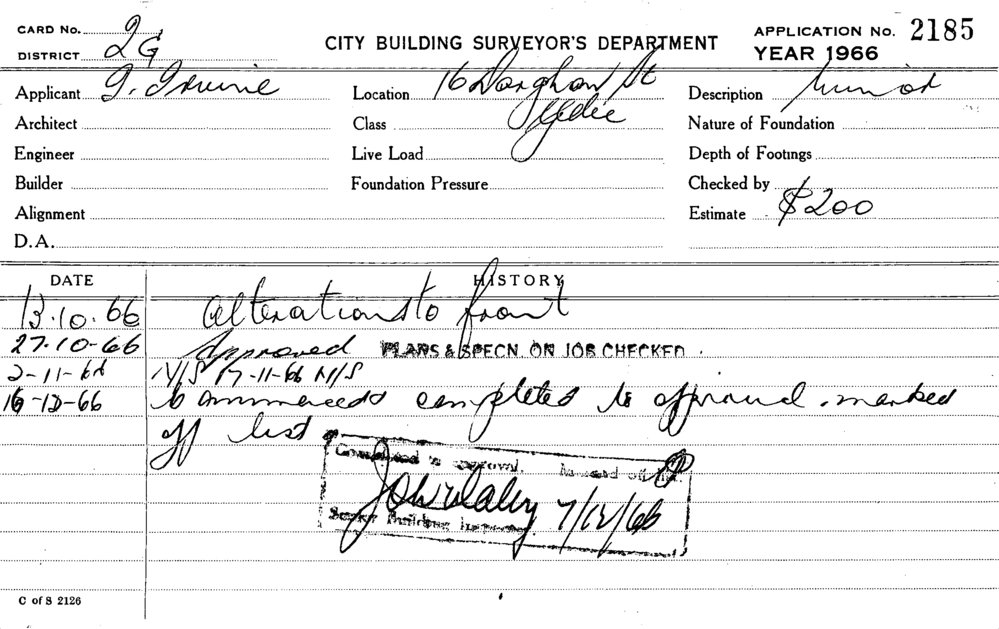 CARD No.
DISTRICT 2G
CITY BUILDING SURVEYOR'S DEPARTMENT
APPLICATION No. 2185
YEAR 1966
Applicant
Location 16 St
Description
Architect
Class
Nature of Foundation
Engineer
Live Load
Depth of Footings
Builder
Foundation Pressure
Checked by
Alignment
Estimate $200
D.A.
DATE HISTORY
13.10.66 Alterations to front
27-10-66 Approved PLANS & SPECN. ON JOB CHECKED.
2-11-66 N/S 17-11-66 N/S
16-12-66 Commenced & completed to approval. marked
off list
Completed to approval. Marked off list.
7/12/66
Senior Building Inspector
C of S 2126